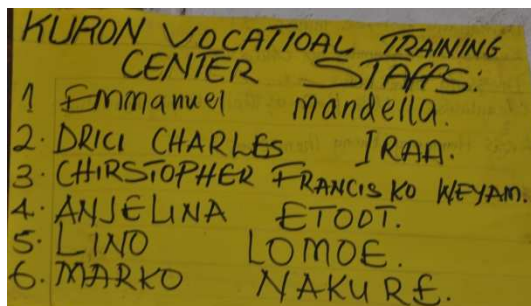 KURON VOCATIOAL TRAINING
CENTER STAFFS.
1 Emmanuel mandella.
2. DRICI CHARLES IRAA.
3. CHIRSTOPHER FRANCISKO WEYAM.
4. ANJELINA ETOOT.
5. LINO LOMOE.
6. MARKO NAKURE.